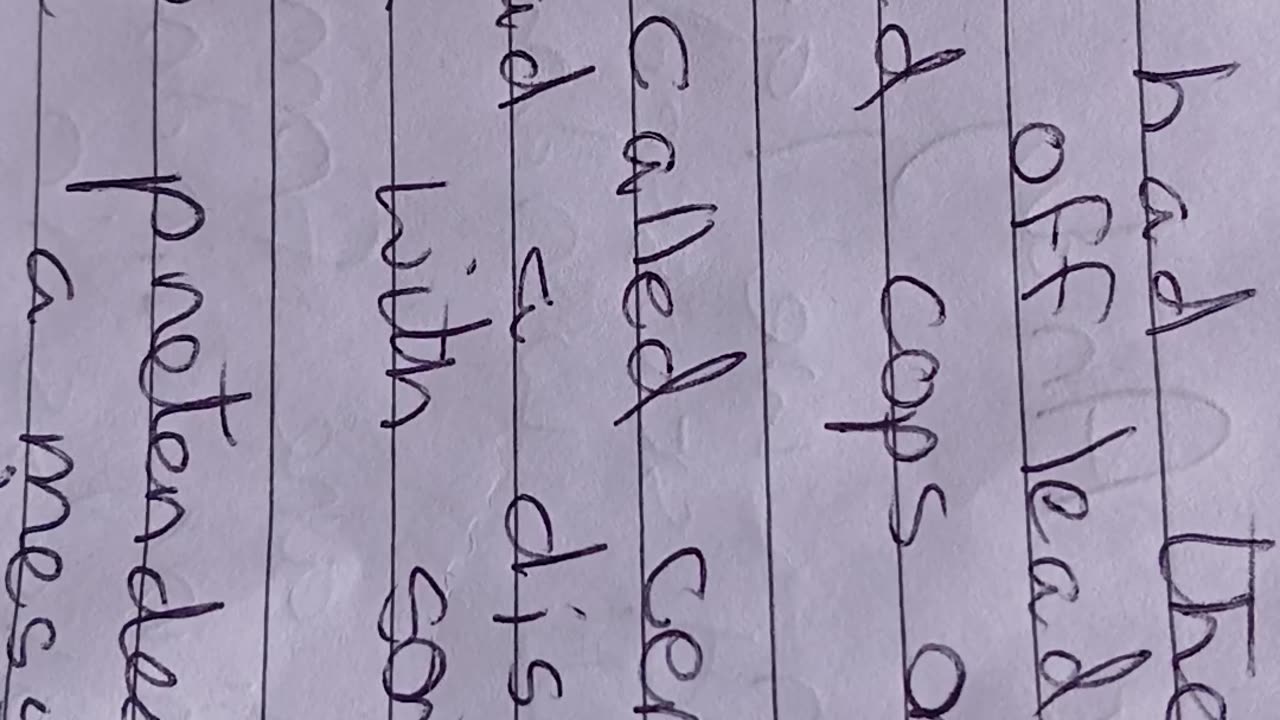 had the
off lead
d cops o
called cer
nd a dis
with son
pnetende
a mess